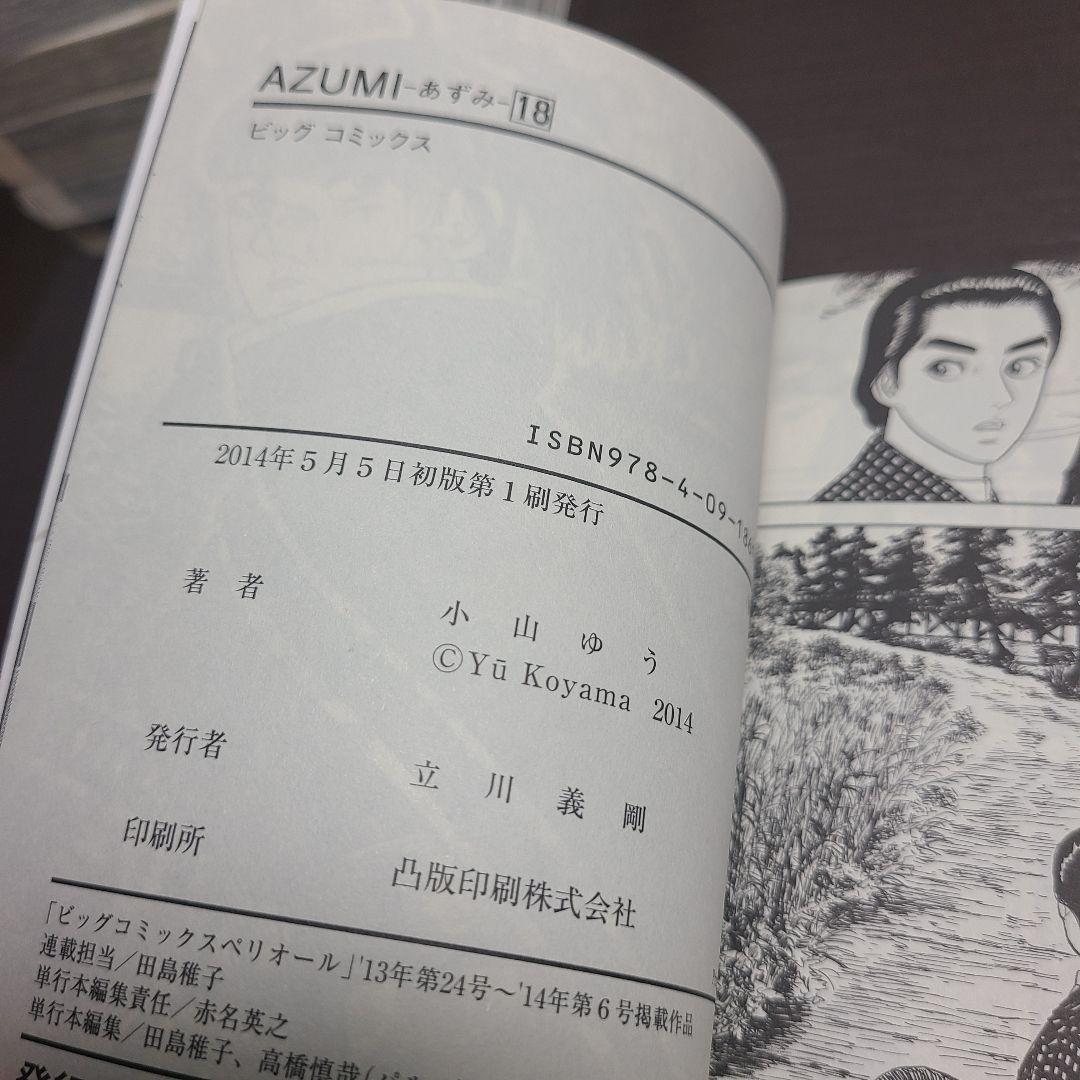 AZUMI-あずみ-18
ビッグ コミックス
ISBN978-4-09-186
2014年5月5日初版第1刷発行
著 者 小 山 ゆ う
©Yū Koyama 2014
発行者 立 川 義 剛
印刷所 凸版印刷株式会社
「ビッグコミックスペリオール」'13年第24号〜'14年第6号掲載作品
連載担当/田島稚子
単行本編集責任/赤名英之
単行本編集/田島稚子、高橋慎哉